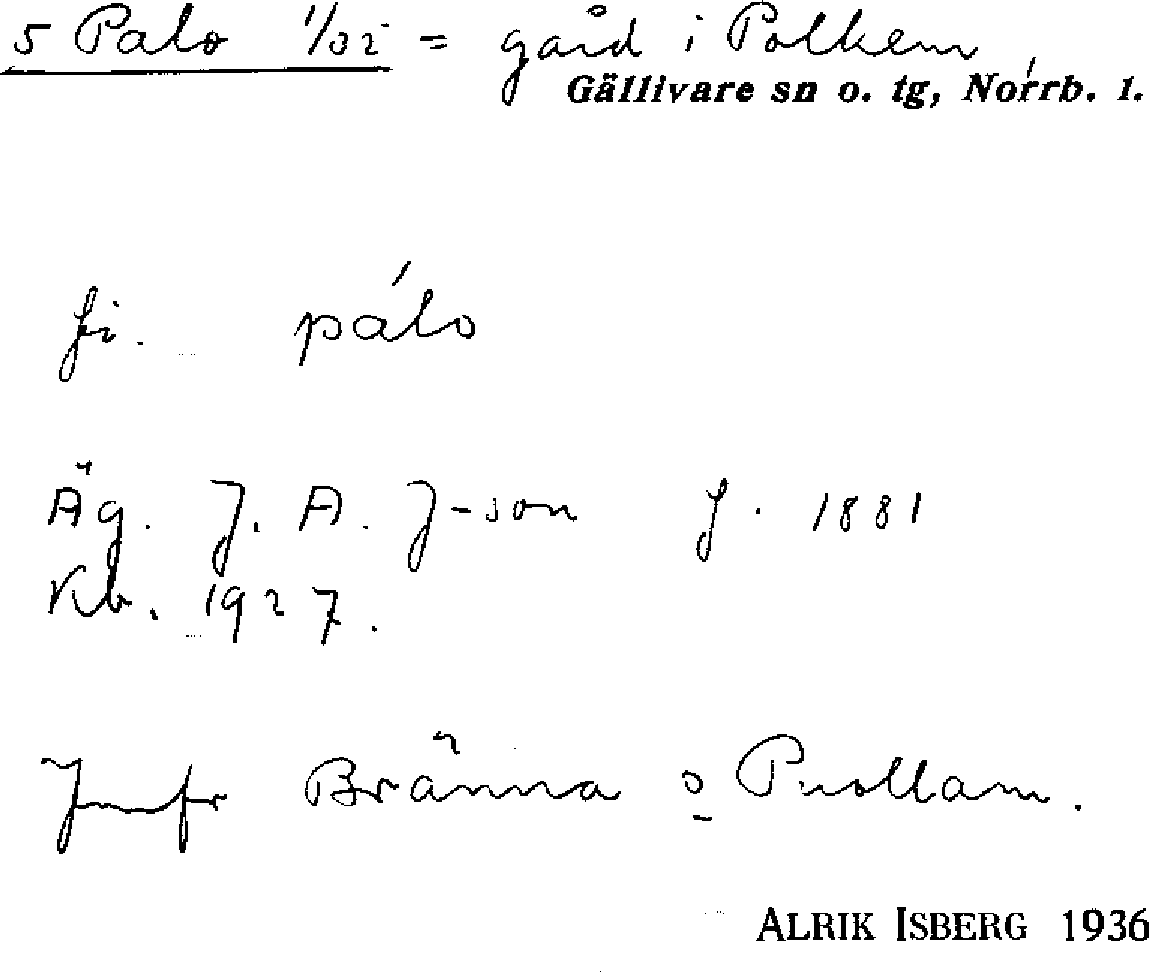 5 Palo 1/32 = gård i Polkem
Gällivare sn o. tg, Norrb. l.
fi. pálo
Äg. J. A. J-son f. 1881
Kb. 1927.
Jmfr Bränna o Puollam.
ALRIK ISBERG 1936